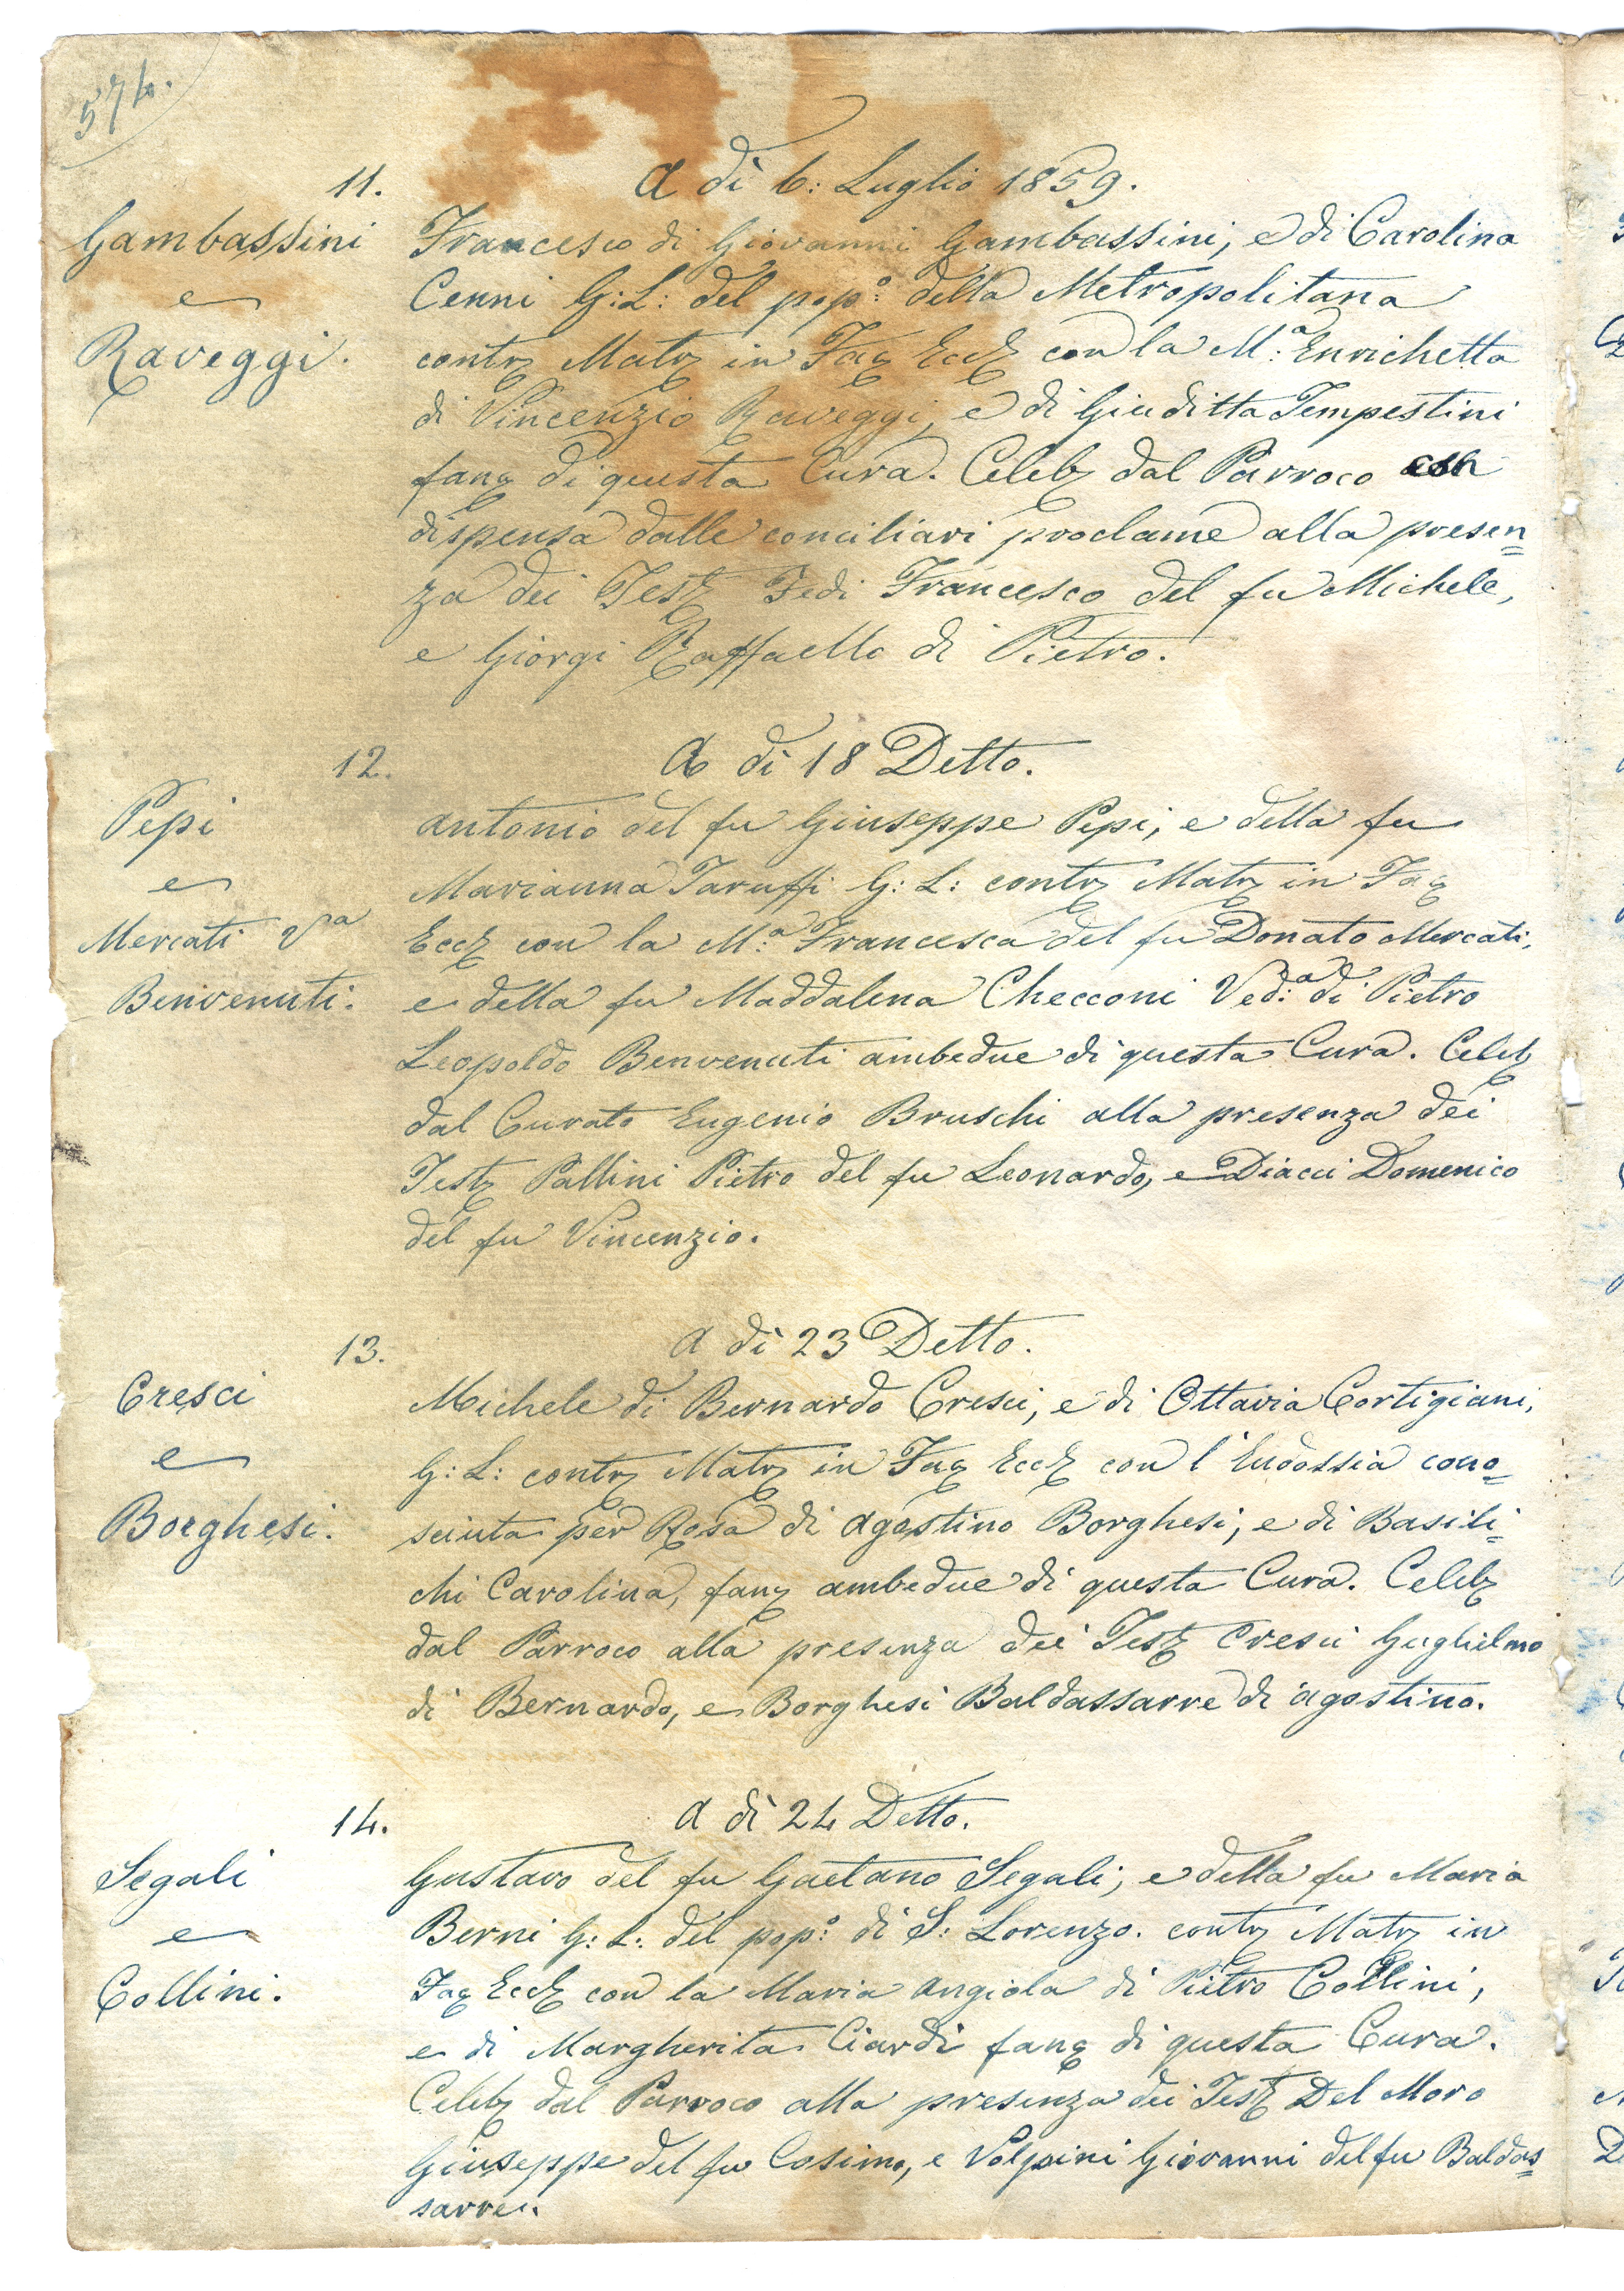 574.
11.
A dì 6: Luglio 1859.
Gambassini
e
Raveggi.
Francesco di Giovanni Gambassini, e di Carolina
Cenni G: L: del pop.º della Metropolitana
contr Matr in Fac Eccl con la M:ª Enrichetta
di Vincenzio Raveggi, e di Giuditta Tempestini
fanc di questa Cura. Celeb dal Parroco con
dispensa dalle conciliari proclame alla presen=
za dei Test Fedi Francesco del fu Michele,
e Giorgi Raffaello di Pietro.
12.
A dì 18 Detto.
Pepi
e
Mercati Vª
Benvenuti.
Antonio del fu Giuseppe Pepi, e della fu
Marianna Taruffi G: L: contr Matr in Fac
Eccl con la M:ª Francesca del fu Donato Mercati,
e della fu Maddalena Checconi Ved:ª di Pietro
Leopoldo Benvenuti ambedue di questa Cura. Celeb
dal Curato Eugenio Bruschi alla presenza dei
Test Pallini Pietro del fu Leonardo, e Diacci Domenico
del fu Vincenzio.
13.
A dì 23 Detto.
Cresci
e
Borghesi.
Michele di Bernardo Cresci, e di Ottavia Cortigiani,
G: L: contr Matr in Fac Eccl con l'Eudossia cono=
sciuta per Rosa di Agostino Borghesi, e di Basili=
chi Carolina, fanc ambedue di questa Cura. Celeb
dal Parroco alla presenza dei Test Cresci Guglielmo
di Bernardo, e Borghesi Baldassarre di Agostino.
14.
A dì 24 Detto.
Segali
e
Collini.
Gustavo del fu Gaetano Segali, e della fu Maria
Berni G: L: del pop:º di S: Lorenzo. contr Matr in
Fac Eccl con la Maria Angiola di Pietro Collini,
e di Margherita Ciardi fanc di questa Cura.
Celeb dal Parroco alla presenza dei Test Del Moro
Giuseppe del fu Cosimo, e Volpini Giovanni del fu Baldas=
sarre.